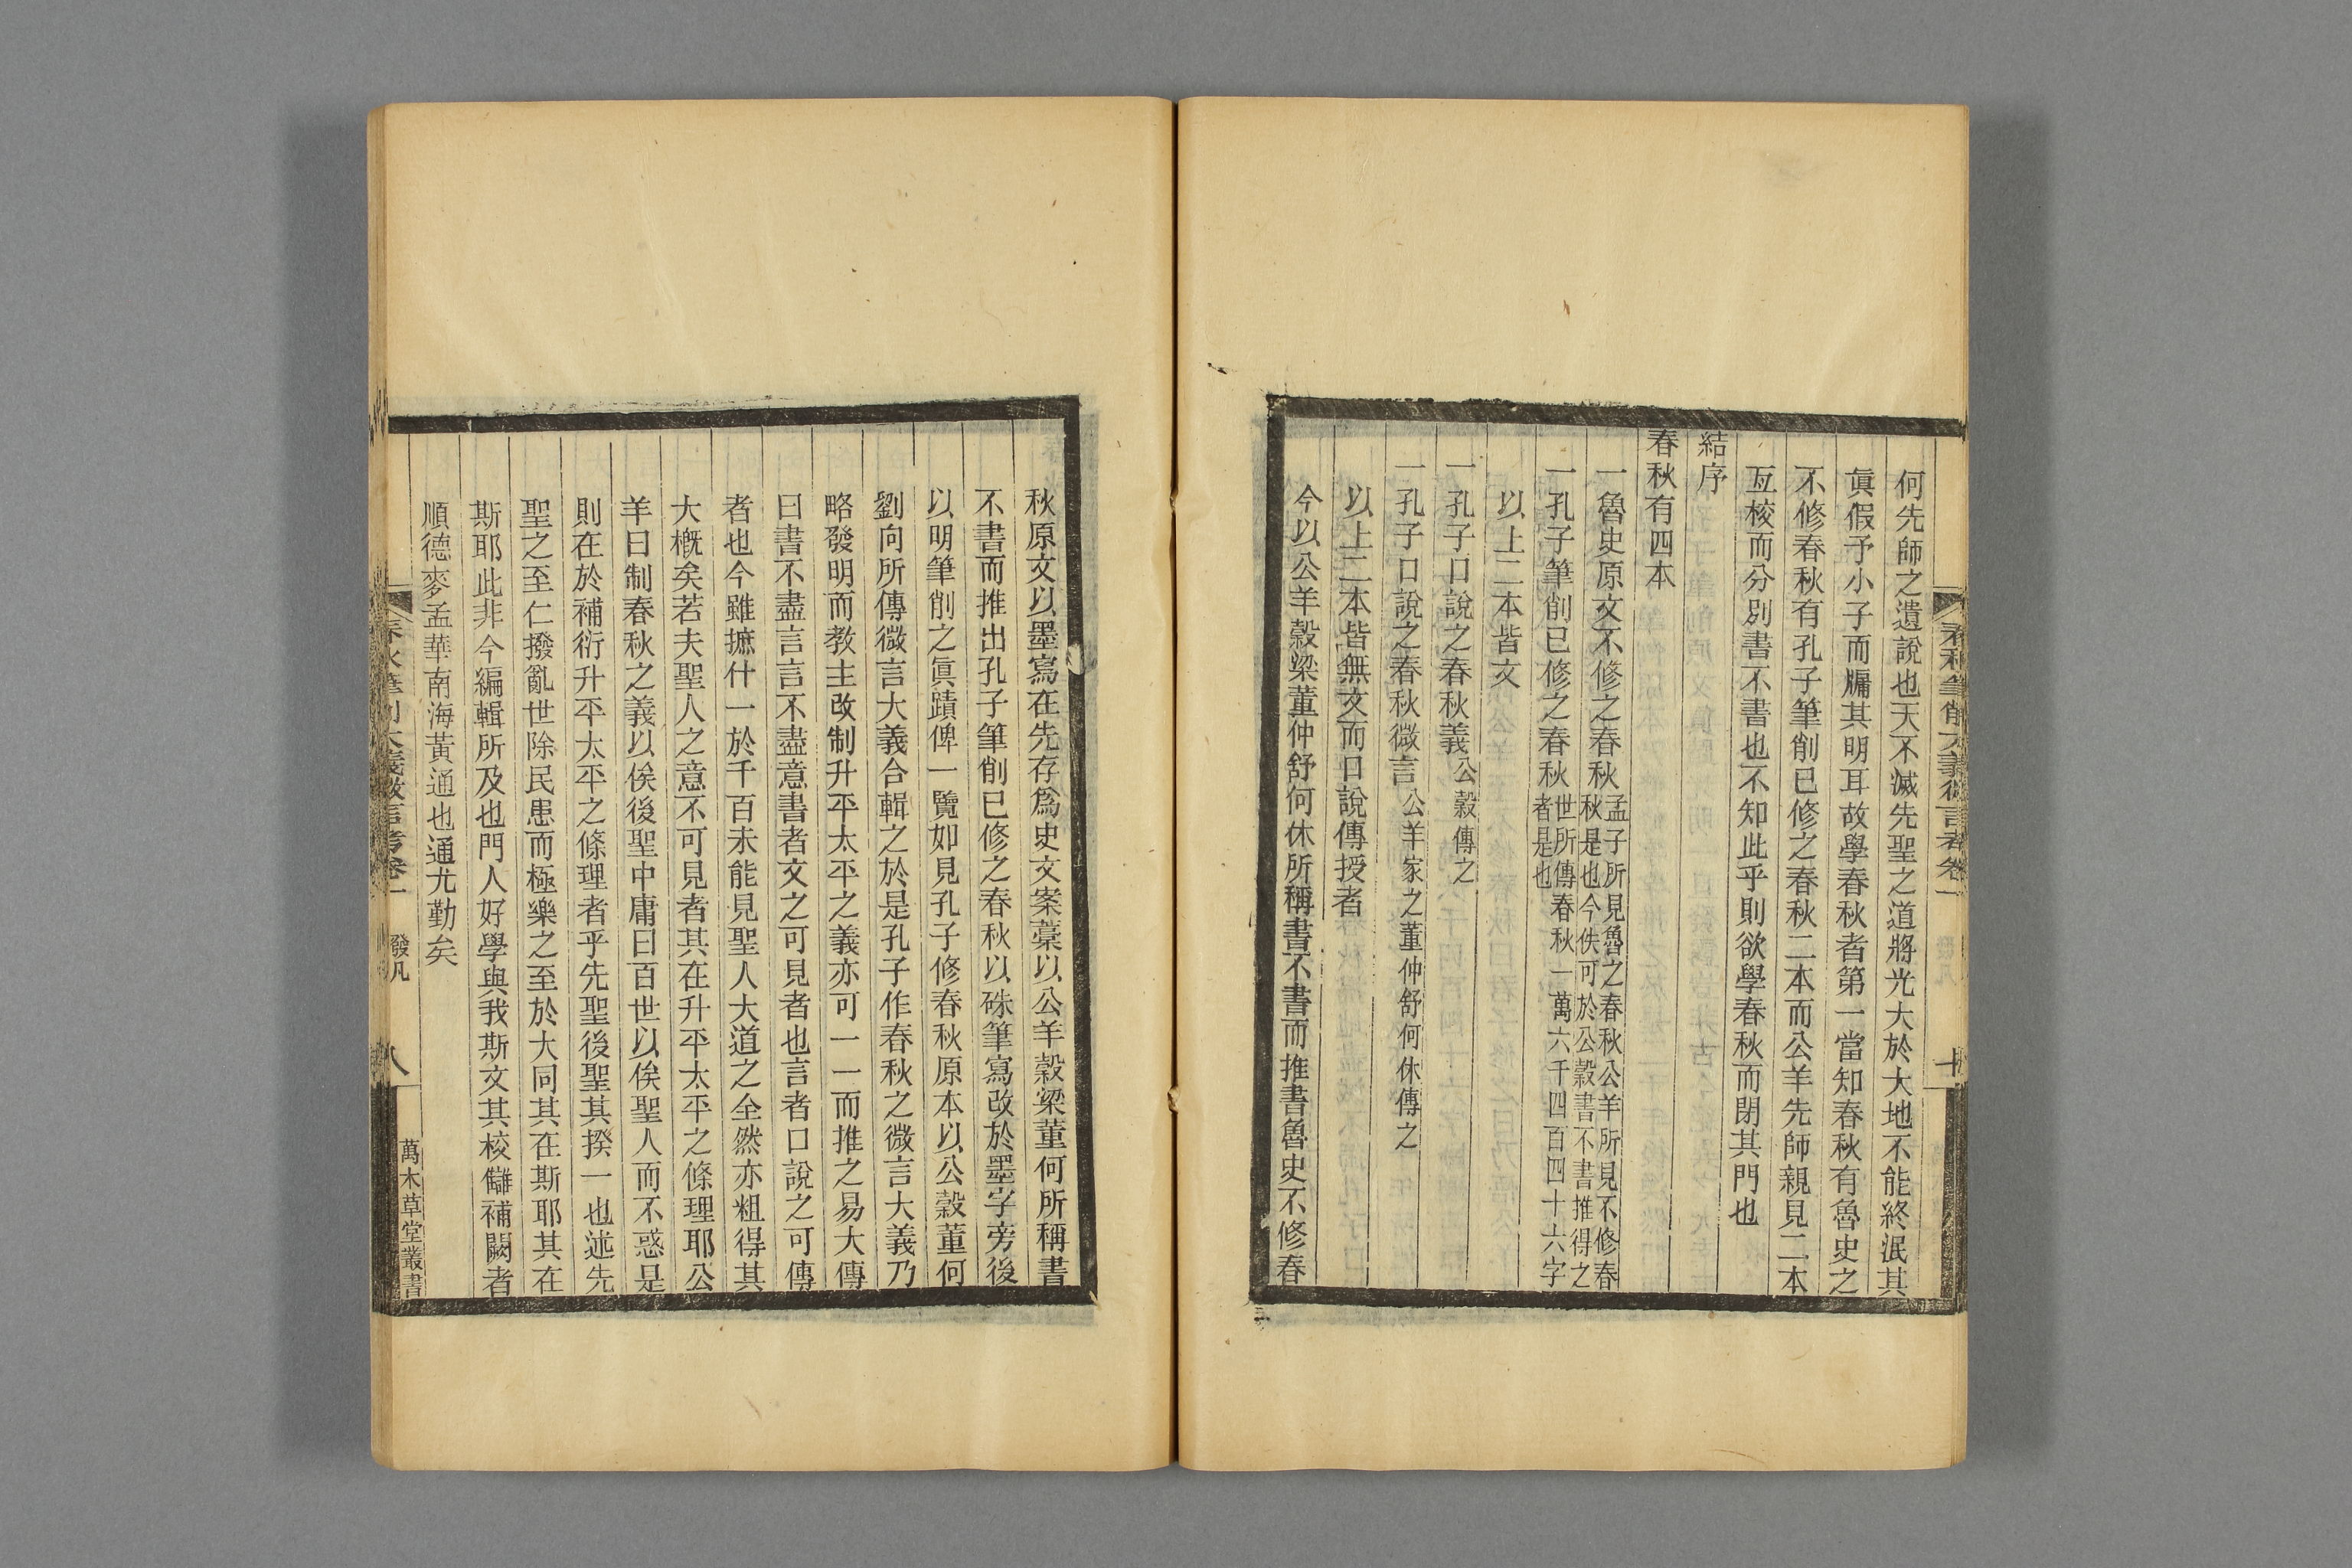 何先師之遺說也天不滅先聖之道將光大於大地不能終泯其
眞假予小子而牖其明耳故學春秋者第一當知春秋有魯史之
不修春秋有孔子筆削已修之春秋二本而公羊先師親見二本
互校而分別書不書也不知此乎則欲學春秋而閉其門也
結序
春秋有四本
一魯史原文不修之春秋孟子所見魯之春秋公羊所見不修春
秋是也今佚可於公穀書不書推得之
一孔子筆削已修之春秋世所傳春秋一萬六千四百四十六字
者是也
以上二本皆文
一孔子口說之春秋義公穀傳之
一孔子口說之春秋微言公羊家之董仲舒何休傳之
以上二本皆無文而口說傳授者
今以公羊穀梁董仲舒何休所稱書不書而推書魯史不修春
秋原文以墨寫在先存爲史文案藁以公羊穀梁董何所稱書
不書而推出孔子筆削已修之春秋以硃筆寫改於墨字旁後
以明筆削之眞蹟俾一覽如見孔子修春秋原本以公穀董何
劉向所傳微言大義合輯之於是孔子作春秋之微言大義乃
略發明而教主改制升平太平之義亦可一一而推之易大傳
曰書不盡言言不盡意書者文之可見者也言者口說之可傳
者也今雖摭什一於千百未能見聖人大道之全然亦粗得其
大槪矣若夫聖人之意不可見者其在升平太平之條理耶公
羊曰制春秋之義以俟後聖中庸曰百世以俟聖人而不惑是
則在於補衍升平太平之條理者乎先聖後聖其揆一也述先
聖之至仁撥亂世除民患而極樂之至於大同其在斯耶其在
斯耶此非今編輯所及也門人好學與我斯文其校讎補闕者
順德麥孟華南海黃通也通尤勤矣
春秋筆削大義微言考卷一 發凡 八 萬木草堂叢書